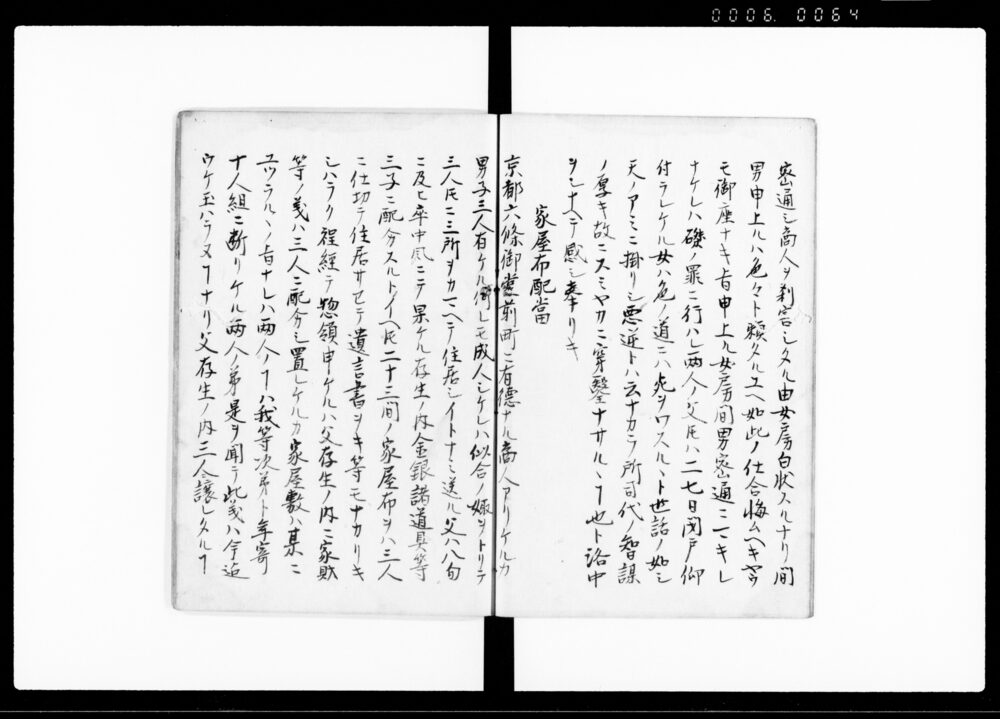 0006. 0064
密通シ商人ヲ刹害シタル由女房白状スルナリ間
男申上ルハ色々ト頼タルユヘ如此ノ仕合悔ムヘキヤウ
モ御座ナキ旨申上ル女房間男密通ニキ
ナケレハ磔ノ罪ニ行ハレ両人ノ父氏ハ二七日閉戸仰
付ラレケル女ハ色ノ道ニハ死ヲワスルヽト世話ノ如シ
天ノアミニ掛リシ悪逆トハ云ナカラ所司代ノ智謀
ノ厚キ故ニスミヤカニ穿鑿ナサルヽヿ也ト洛中
ヲシナヘテ感シ奉リキ
家屋布配當
京都六條御前町ニ有德ナル商人アリケルカ
男子三人有ケル何レモ成人シケレハ似合ノ娵ヲトリテ
三人氏ニ三所ヲカマヘテ住居シイトナミ送ル父八旬
ニ及ヒ卒中風ニテ果ケル存生ノ内金銀諸道具等
三子ニ配分スルトイヘ氏二十三間ノ家屋布ヲハ三人
ニ仕切テ住居サセテ遺言書ヲキ等モナカリキ
シハラク程經テ惣領申ケルハ父存生ノ内ニ家財
等ノ義ハ三人ニ配分シ置レケルカ家屋敷ハ某ニ
ユツラルヽノ旨ナレハ両人ノヿハ我等次第ト年寄
十人組ニ断リケル両人ノ弟是ヲ聞テ此義ハ今迠
ウケ玉ハラヌヿナリ父存生ノ内三人ヘ譲レタルヿ